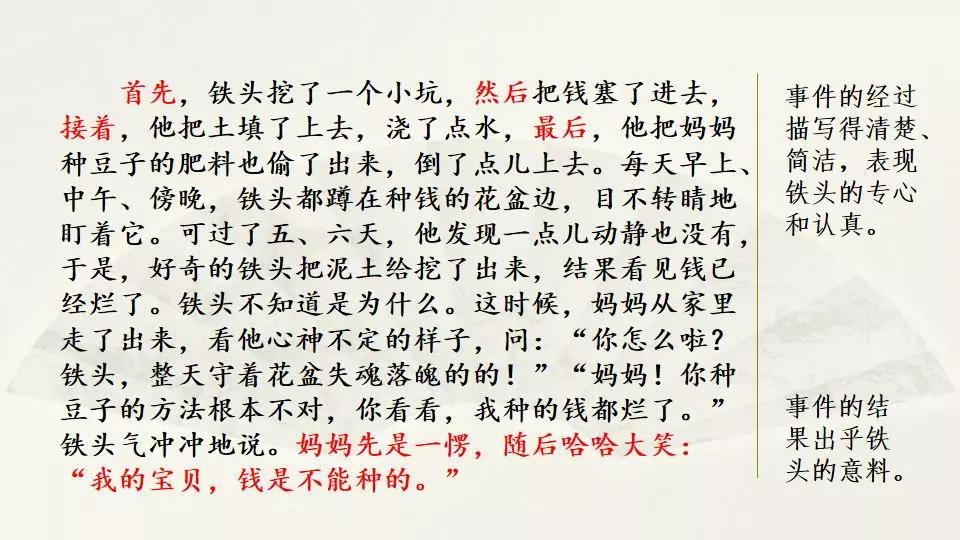 首先，铁头挖了一个小坑，然后把钱塞了进去，
接着，他把土填了上去，浇了点水，最后，他把妈妈
种豆子的肥料也偷了出来，倒了点儿上去。每天早上、
中午、傍晚，铁头都蹲在种钱的花盆边，目不转睛地
盯着它。可过了五、六天，他发现一点儿动静也没有，
于是，好奇的铁头把泥土给挖了出来，结果看见钱已
经烂了。铁头不知道是为什么。这时候，妈妈从家里
走了出来，看他心神不定的样子，问：“你怎么啦？
铁头，整天守着花盆失魂落魄的的！”“妈妈！你种
豆子的方法根本不对，你看看，我种的钱都烂了。”
铁头气冲冲地说。妈妈先是一愣，随后哈哈大笑：
“我的宝贝，钱是不能种的。”
事件的经过
描写得清楚、
简洁，表现
铁头的专心
和认真。
事件的结
果出乎铁
头的意料。